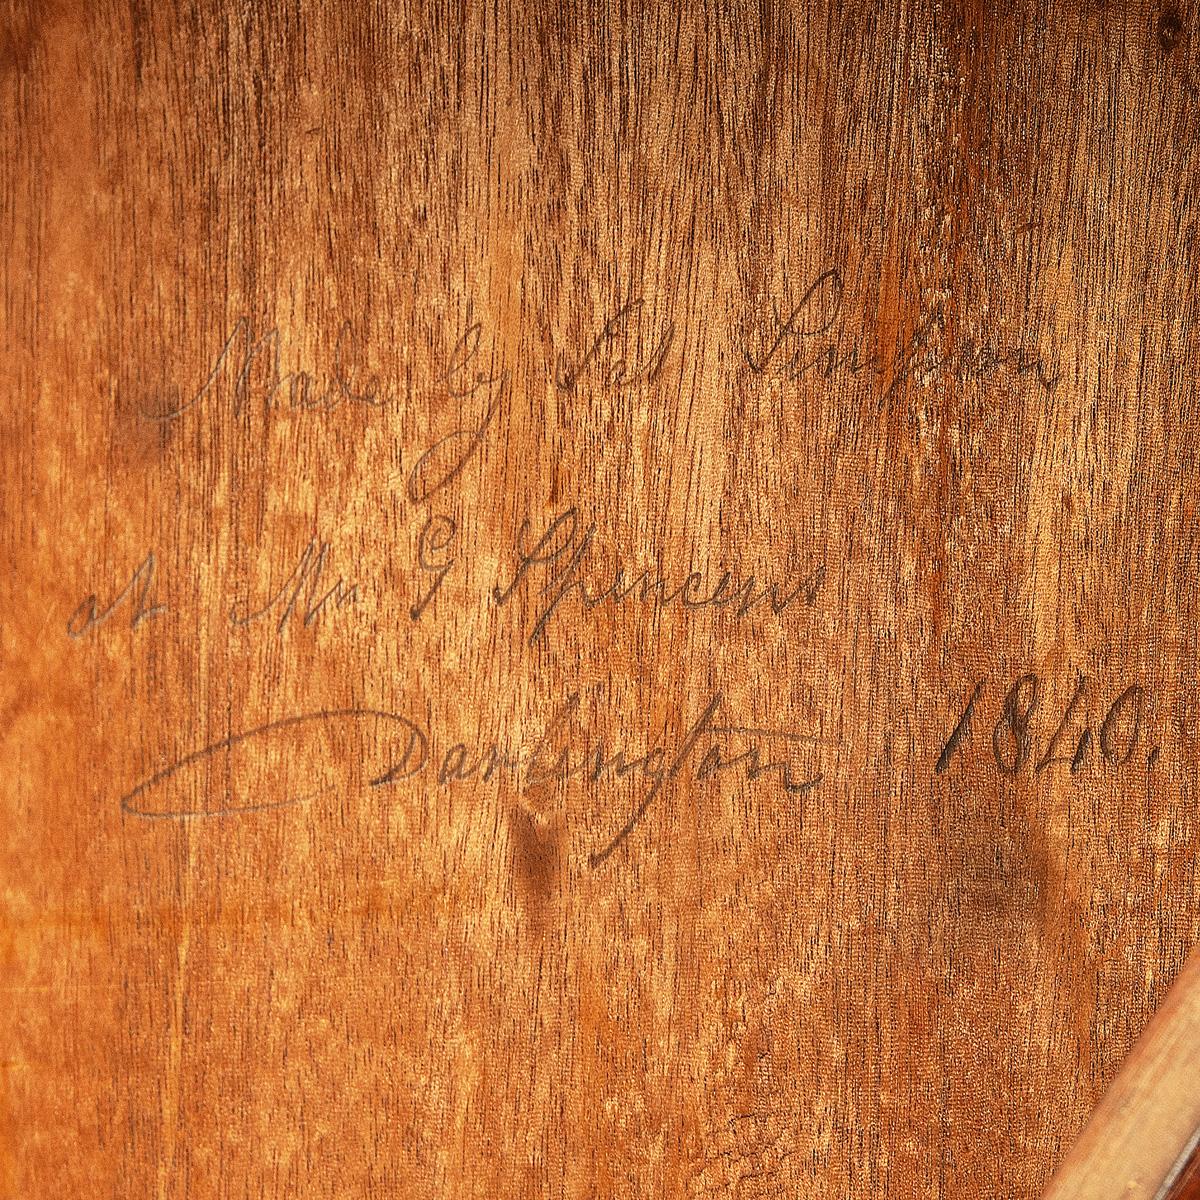 Made by Simpson
at Mr G Spencers
Darlington 1840.